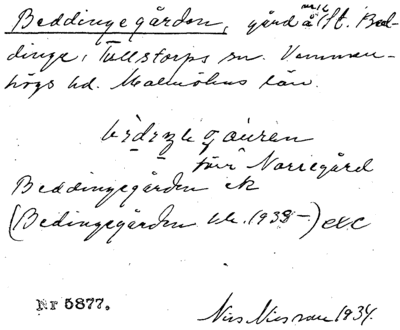 Beddingegården, gård nr 16
å St. Bed-
dinge, Tullstorps sn. Vemmen-
högs hd. Malmöhus län.
förr Norregård
Beddingegården ek
(Bedingegården bl. 1938-) exc
Nr 5877.
Nils Nilsson 1934.